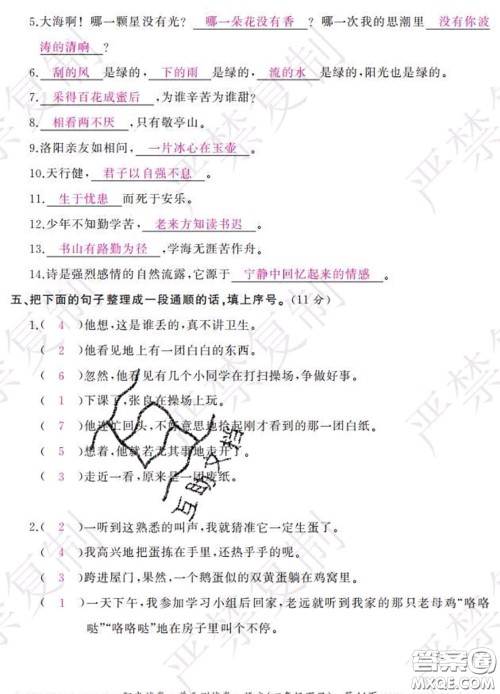 5.大海啊!哪一颗星没有光? 哪一朵花没有香 ?哪一次我的思潮里 没有你波
涛的清响 ?
6. 刮的风 是绿的, 下的雨 是绿的, 流的水 是绿的,阳光也是绿的。
7. 采得百花成蜜后 ,为谁辛苦为谁甜?
8. 相看两不厌 ,只有敬亭山。
9.洛阳亲友如相问, 一片冰心在玉壶 。
10.天行健, 君子以自强不息 。
11. 生于忧患 而死于安乐。
12.少年不知勤学苦, 老来方知读书迟 。
13. 书山有路勤为径 ,学海无涯苦作舟。
14.诗是强烈感情的自然流露,它源于 宁静中回忆起来的情感 。
五、把下面的句子整理成一段通顺的话,填上序号。(11分)
1.( 4 )他想,这是谁丢的,真不讲卫生。
( 2 )他看见地上有一团白白的东西。
( 6 )忽然,他看见有几个小同学在打扫操场,争做好事。
( 1 )下课了,张良在操场上玩。
( 7 )他连忙回头,不好意思地拾起刚才看到的那一团白纸。
( 5 )想着,他就若无其事地走开了。
( 3 )走近一看,原来是一团废纸。
2.( 2 )一听到这熟悉的叫声,我就猜准它一定生蛋了。
( 4 )我高兴地把蛋拣在手里,还热乎乎的呢。
( 3 )跨进屋门,果然,一个鹅蛋似的双黄蛋躺在鸡窝里。
( 1 )一天下午,我参加学习小组后回家,老远就听到我家的那只老母鸡“咯咯
哒”“咯咯哒”地在房子里叫个不停。
严禁复制
互助文档
答案圈
MXQE.COM